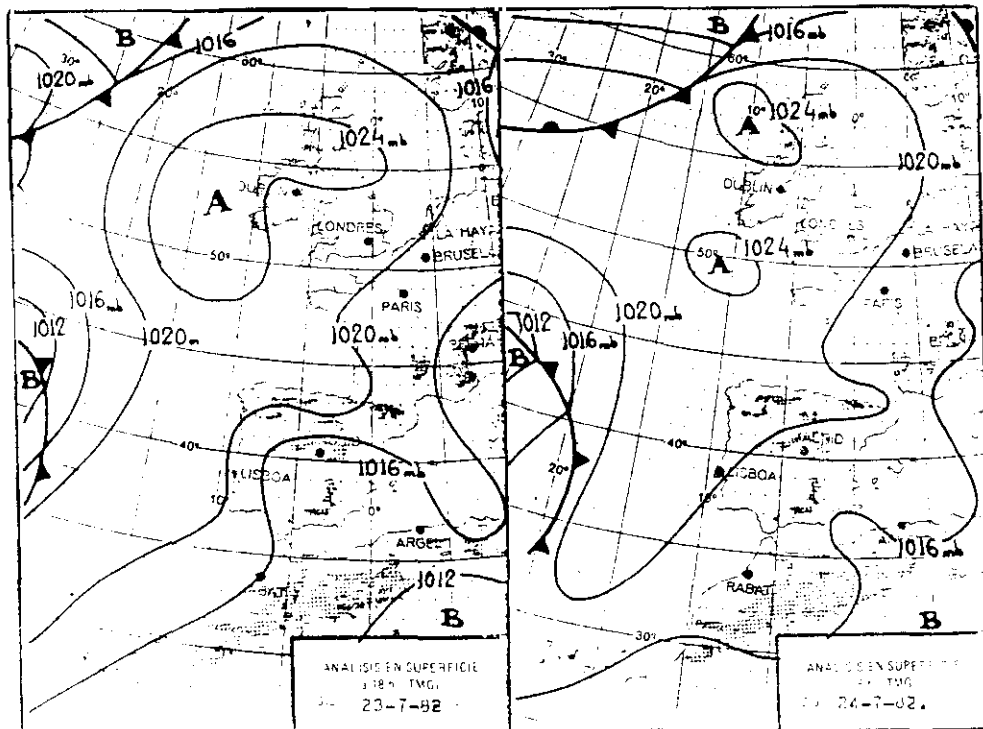 B
1016
30°
1020 mb
20°
60°
1016
10°
1024 mb
0°
A
DUBLIN
LONDRES
LA HAYA
50°
BRUSEL
1016 mb
PARIS
1012
1020 m
1020 mb
B
40°
LISBOA
1016 mb
10°
0°
ARGEL
1012
B
ANALISIS EN SUPERFICIE
18 h TMG
23-7-82
B
1016 mb
60°
20°
10°
1024 mb
A
0°
10°
1020 mb
DUBLIN
LONDRES
LA HAYA
1024 mb
50°
A
BRUSELA
PARIS
1020 mb
1012
1016 mb
B
40°
MADRID
LISBOA
20°
10°
1016 mb
RABAT
30°
B
ANALISIS EN SUPERFICIE
TMG
24-7-82.